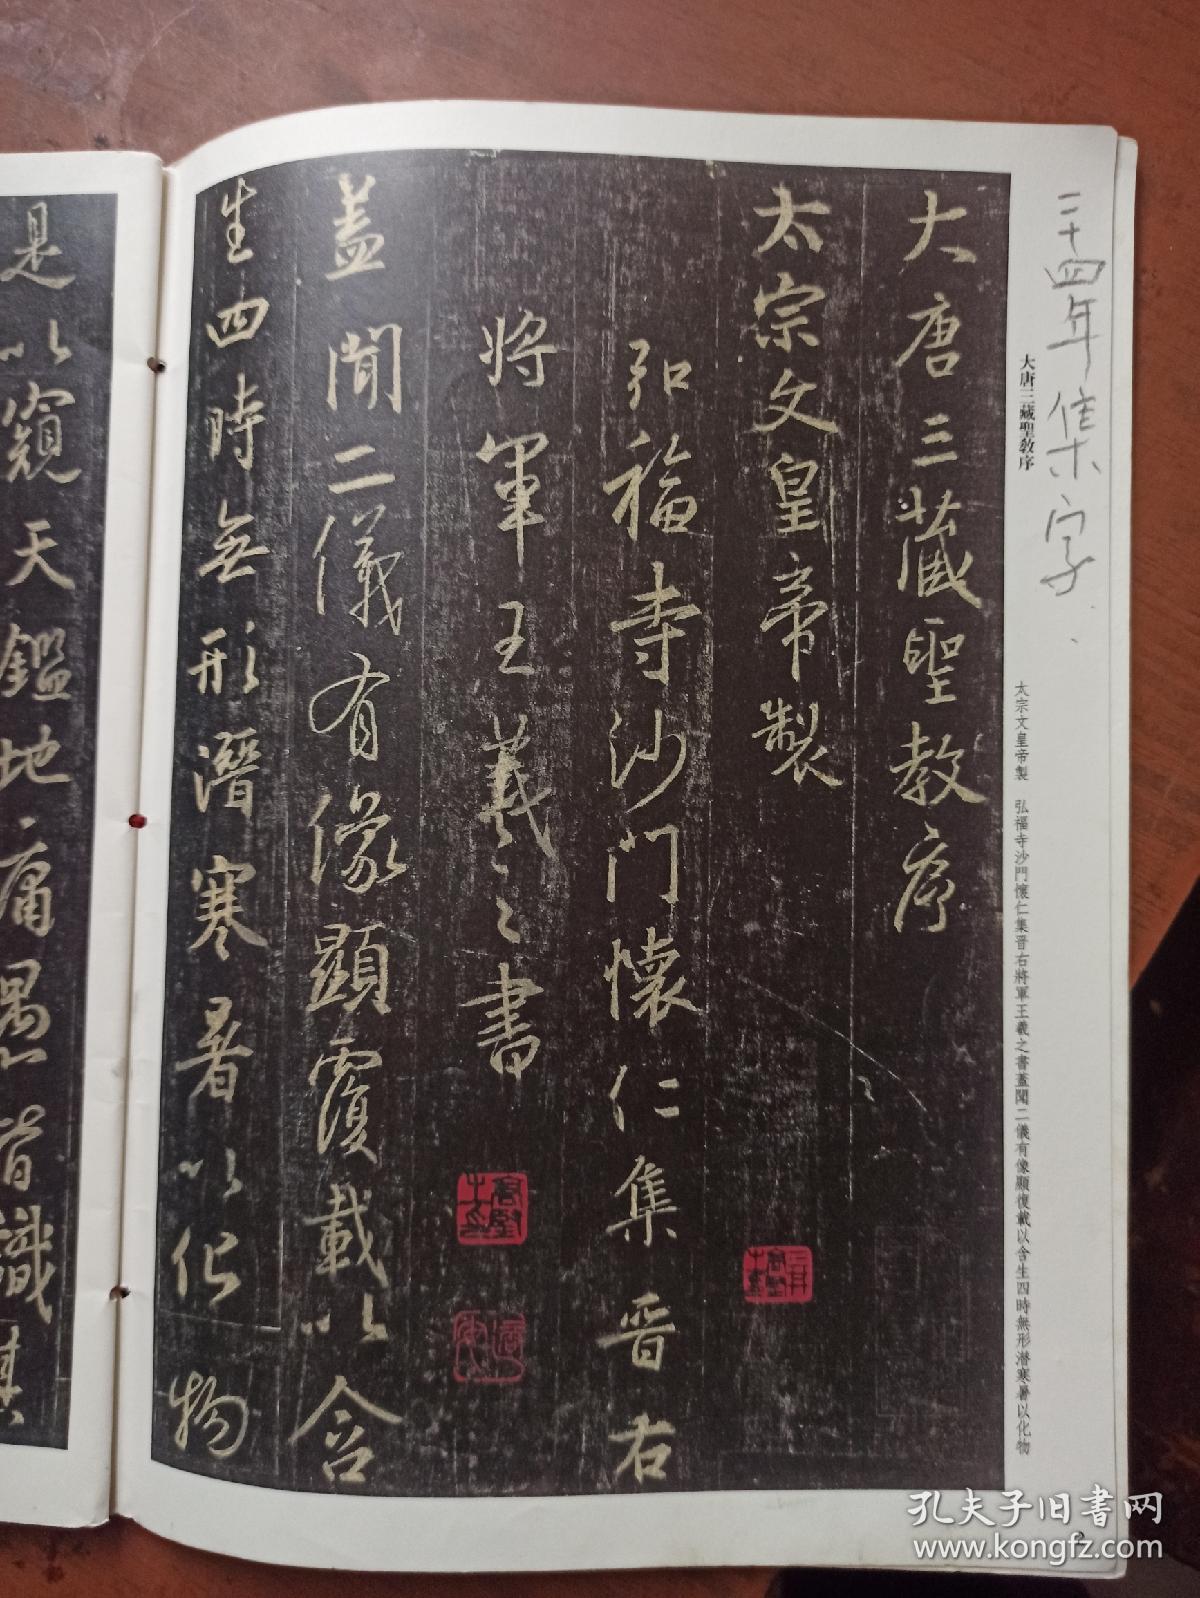 二十四年集字
大唐三藏聖教序
太宗文皇帝製 弘福寺沙門懷仁集晋右將軍王羲之書蓋聞二儀有像顯復載以含生四時無形潜寒暑以化物
大唐三藏聖教序
太宗文皇帝製
弘福寺沙門懷仁集晋右
將軍王羲之書
蓋聞二儀有像顯覆載以含
生四時無形潛寒暑以化物
是以窺天鑑地庸愚皆識其
2
孔夫子旧书网
www.kongfz.com